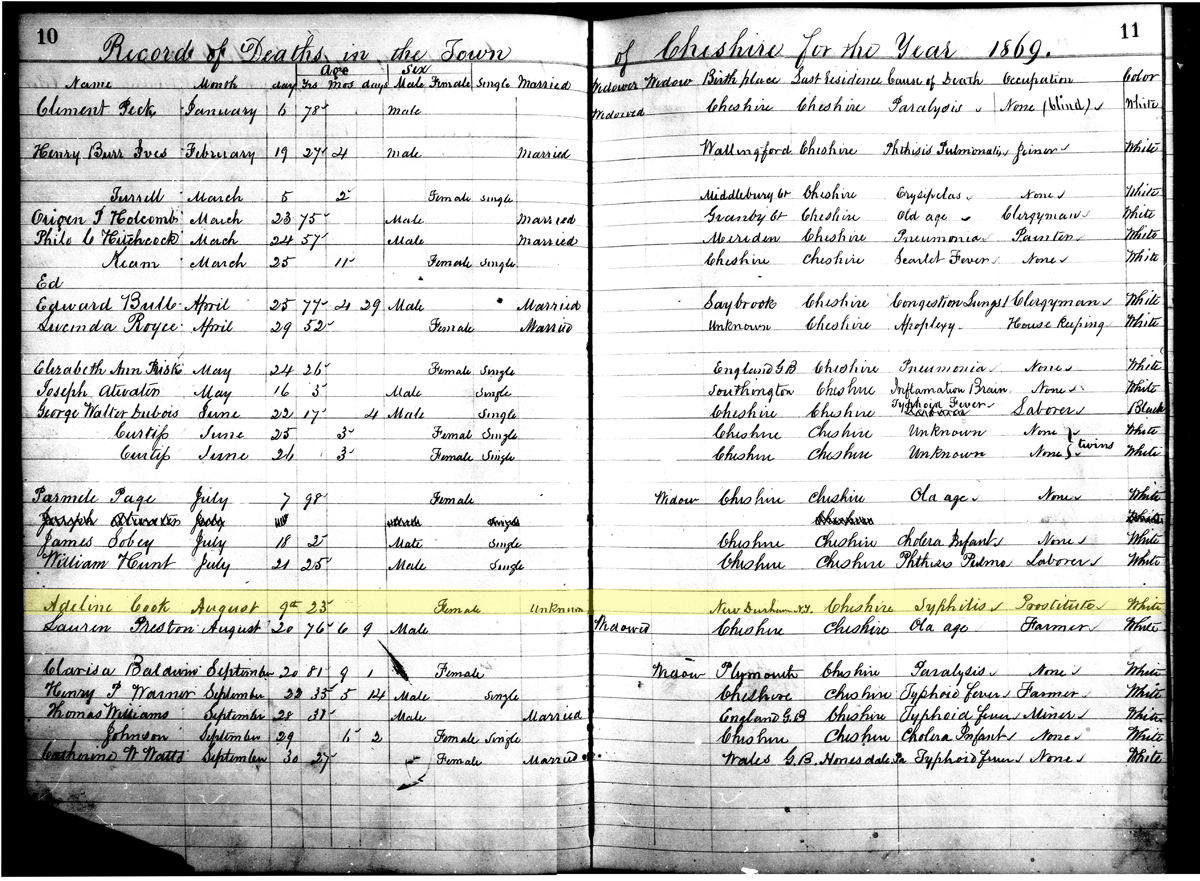 10
11
Record of Deaths in the Town of Cheshire for the Year 1869.
Age Sex
Name Month day Yrs Mos days Male Female Single Married Widower Widow Birth place Last Residence Cause of Death Occupation Color
Clement Peck January 6 78 Male Widowed Cheshire Cheshire Paralysis None (blind) White
Henry Burr Ives February 19 27 4 Male Married Wallingford Cheshire Phthisis Pulmonalis Joiner White
Turrell March 5 2 Female Single Middlebury Ct Cheshire Erysipelas None White
Origen P Holcomb March 23 75 Male Married Granby Ct Cheshire Old age Clergyman White
Philo C Hitchcock March 24 57 Male Married Meriden Cheshire Pneumonia Painter White
Keam March 25 11 Female Single Cheshire Cheshire Scarlet Fever None White
Ed
Edward Bull April 25 77 4 29 Male Married Saybrook Cheshire Congestion Lungs Clergyman White
Lucinda Royce April 29 52 Female Married Unknown Cheshire Apoplexy House Keeping White
Elizabeth Ann May 24 26 Female Single England G B Cheshire Pneumonia None White
Joseph Atwater May 16 3 Male Single Southington Cheshire Inflamation Brain None White
George Walter Dubois June 22 17 4 Male Single Cheshire Cheshire Typhoid Fever Laborer Black
Curtiss June 25 3 Femal Single Cheshire Cheshire Unknown None White
twins
Curtiss June 26 3 Female Single Cheshire Cheshire Unknown None White
Parmele Page July 7 98 Female Widow Cheshire Cheshire Old age None White
Joseph Atwater July Single Cheshire White
James Sobey July 18 2 Male Single Cheshire Cheshire Cholera Infant None White
William Hunt July 21 25 Male Single Cheshire Cheshire Phthisis Pulmo Laborer White
Adeline Cook August 9 23 Female Unknown New Durham N.J. Cheshire Syphilis Prostitute White
Lauren Preston August 20 76 6 9 Male Widowed Cheshire Cheshire Old age Farmer White
Clarisa Baldwin September 20 81 9 1 Female Widow Plymouth Cheshire Paralysis None White
Henry P Warner September 22 35 5 14 Male Single Cheshire Cheshire Typhoid fever Farmer White
Thomas Williams September 28 38 Male Married England G B Cheshire Typhoid fever Miner White
Johnson September 29 6 2 Female Single Cheshire Cheshire Cholera Infant None White
Catherine W Watts September 30 27 Female Married Wales G.B. Honesdale Pa Typhoid fever None White